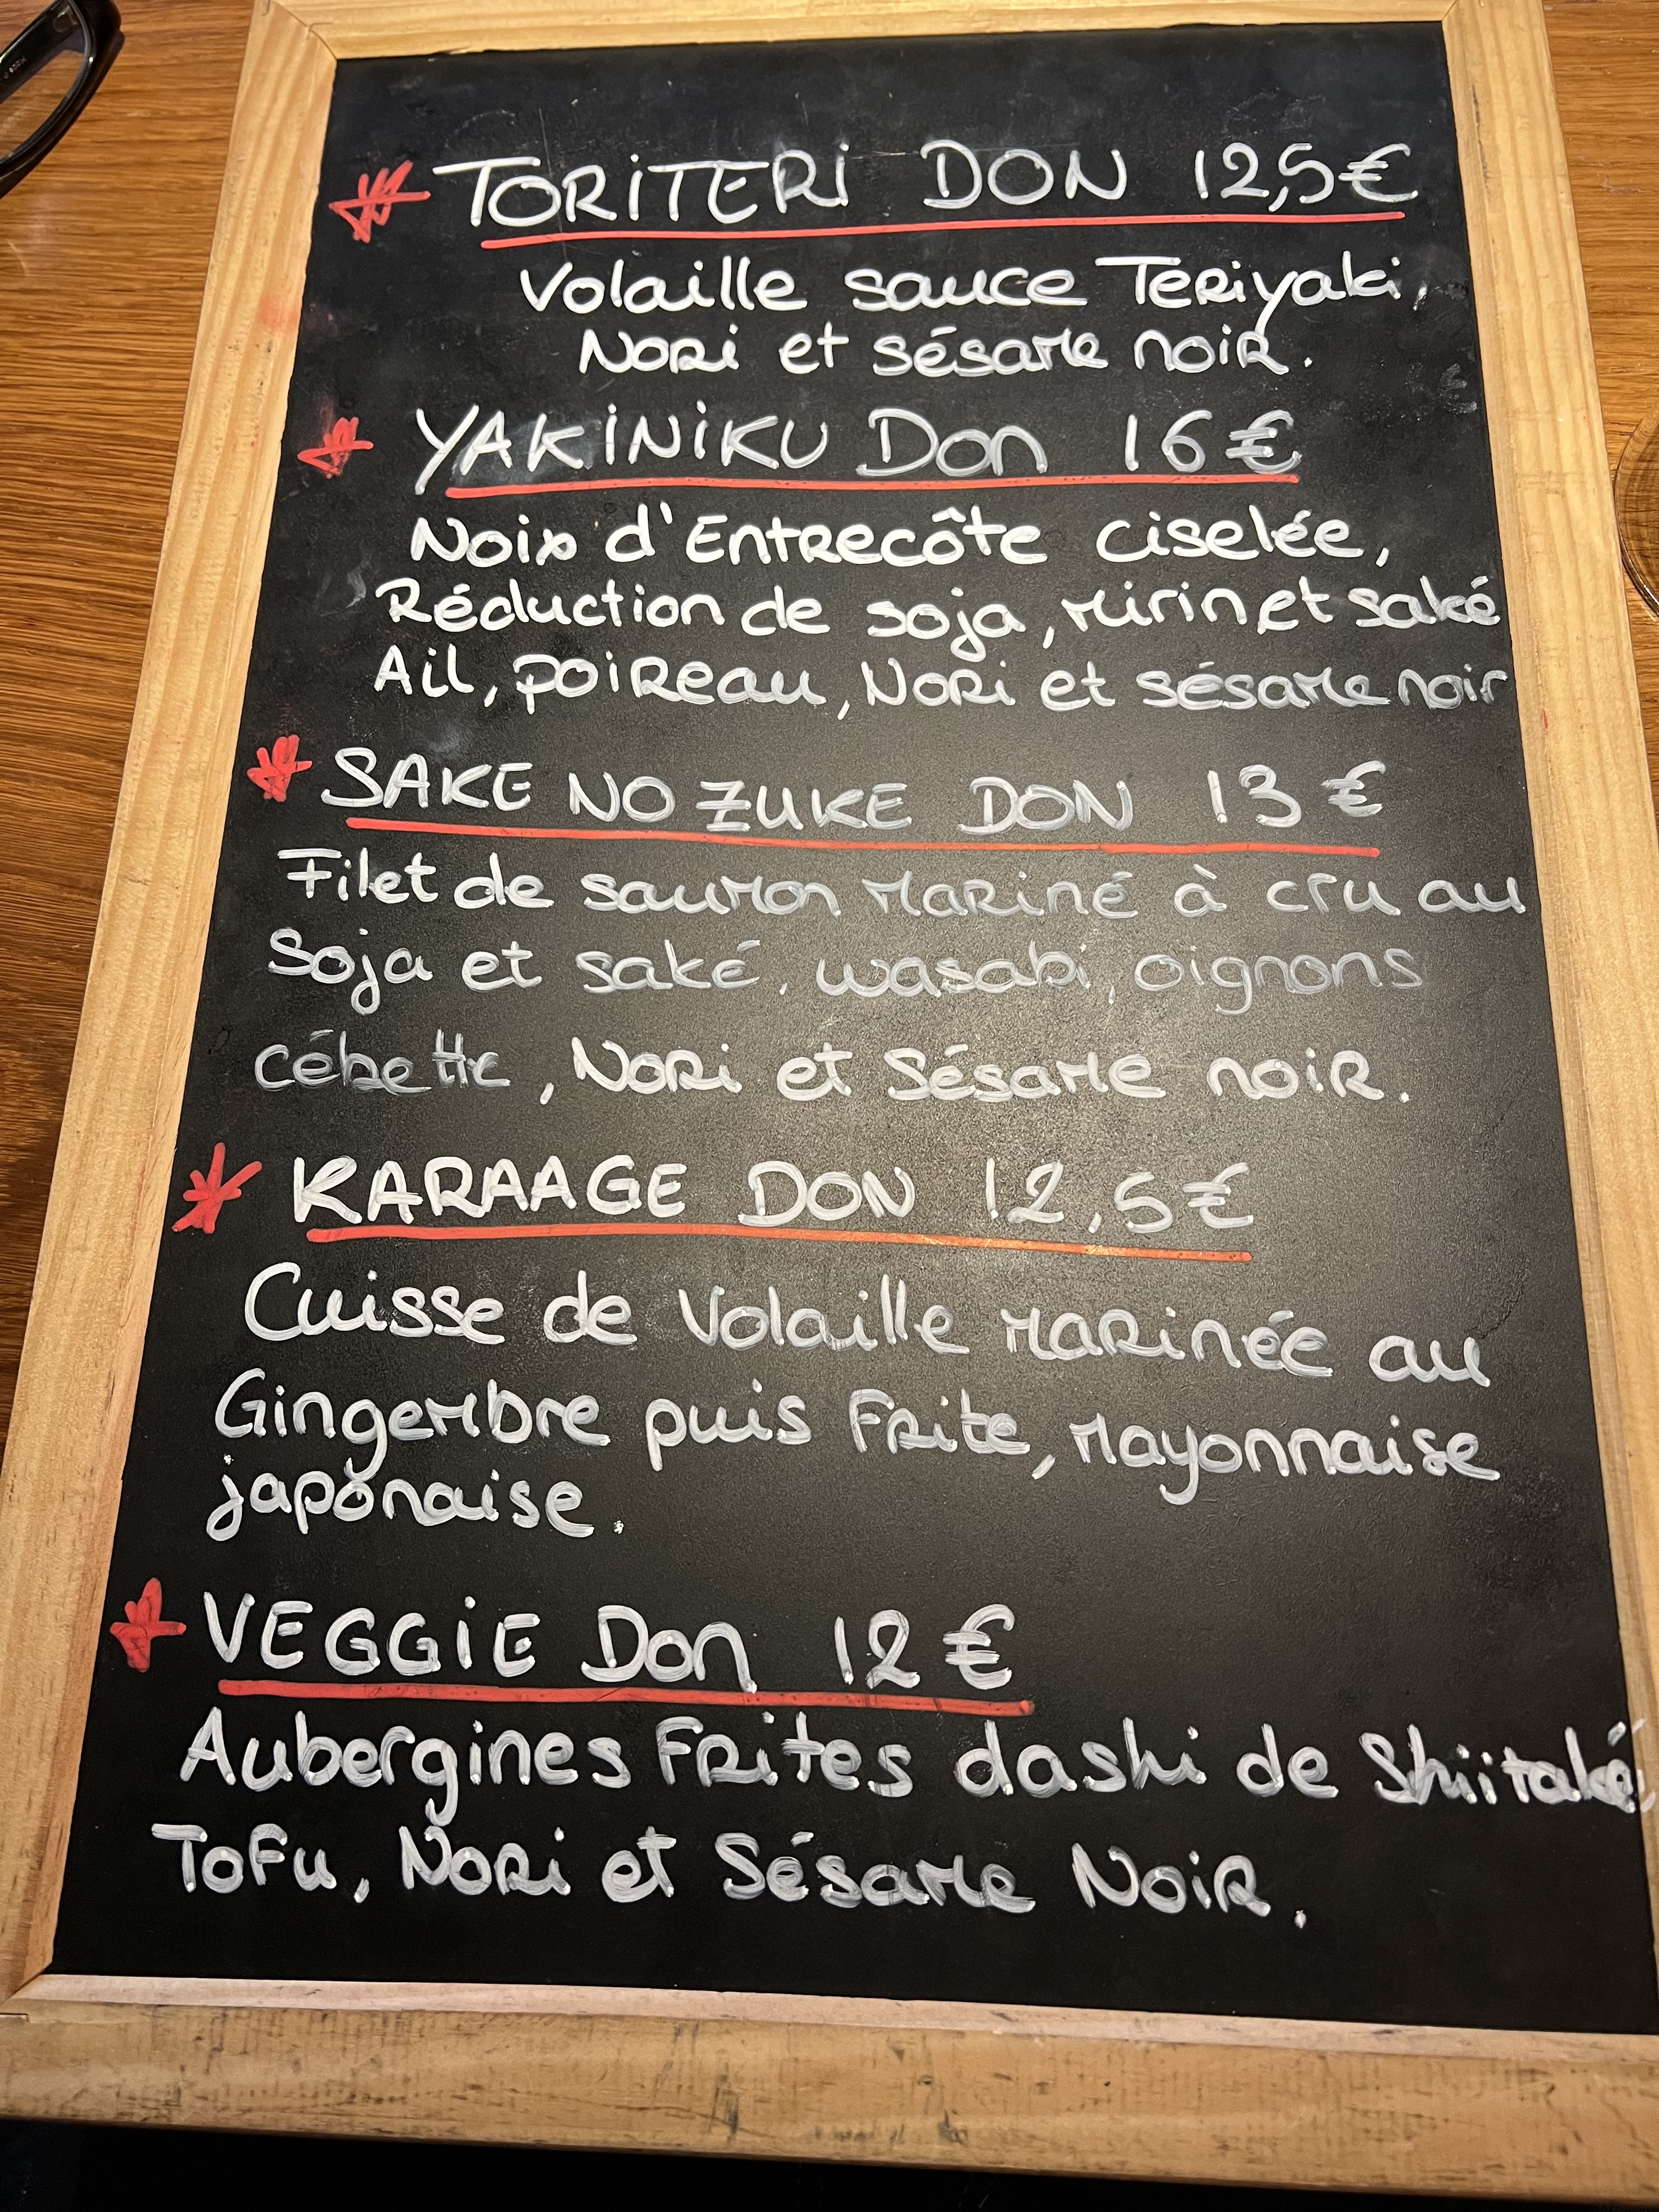 TORITERI DON 12,5€
Volaille sauce Teriyaki,
Nori et sésame noir.
YAKINIKU Don 16€
Noix d'Entrecôte ciselée,
Réduction de soja, mirin et saké
Ail, poireau, Nori et sésame noir
SAKE NO ZUKE DON 13€
Filet de saumon mariné à cru au
Soja et saké, wasabi, oignons
cébette, Nori et Sésame noir.
KARAAGE DON 12,5€
Cuisse de Volaille marinée au
Gingembre puis Frite, mayonnaise
japonaise.
VEGGIE Don 12€
Aubergines Frites dashi de Shiitaké,
Tofu, Nori et Sésame Noir.